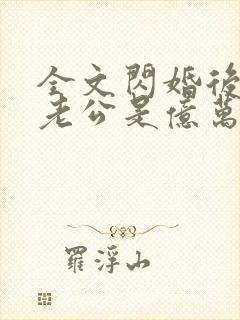 全文閃婚後
老公是億萬
羅浮山